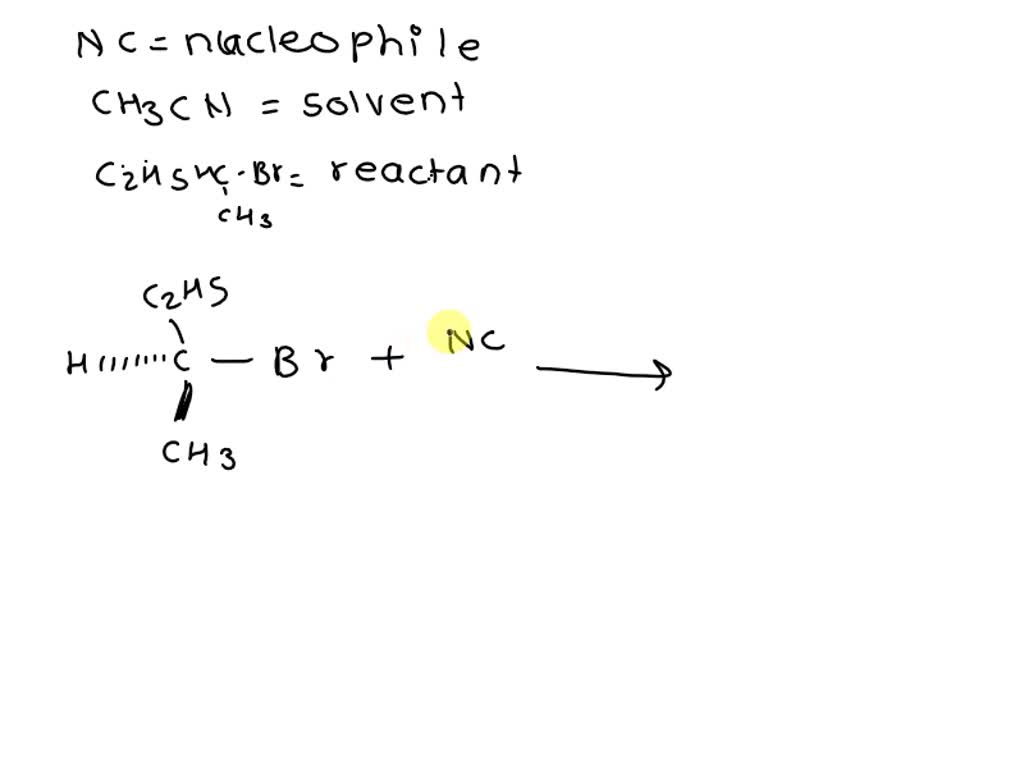 NC = nucleophile
CH3CN = solvent
C2H5HC-Br = reactant
CH3
C2H5
H C - Br + NC
CH3